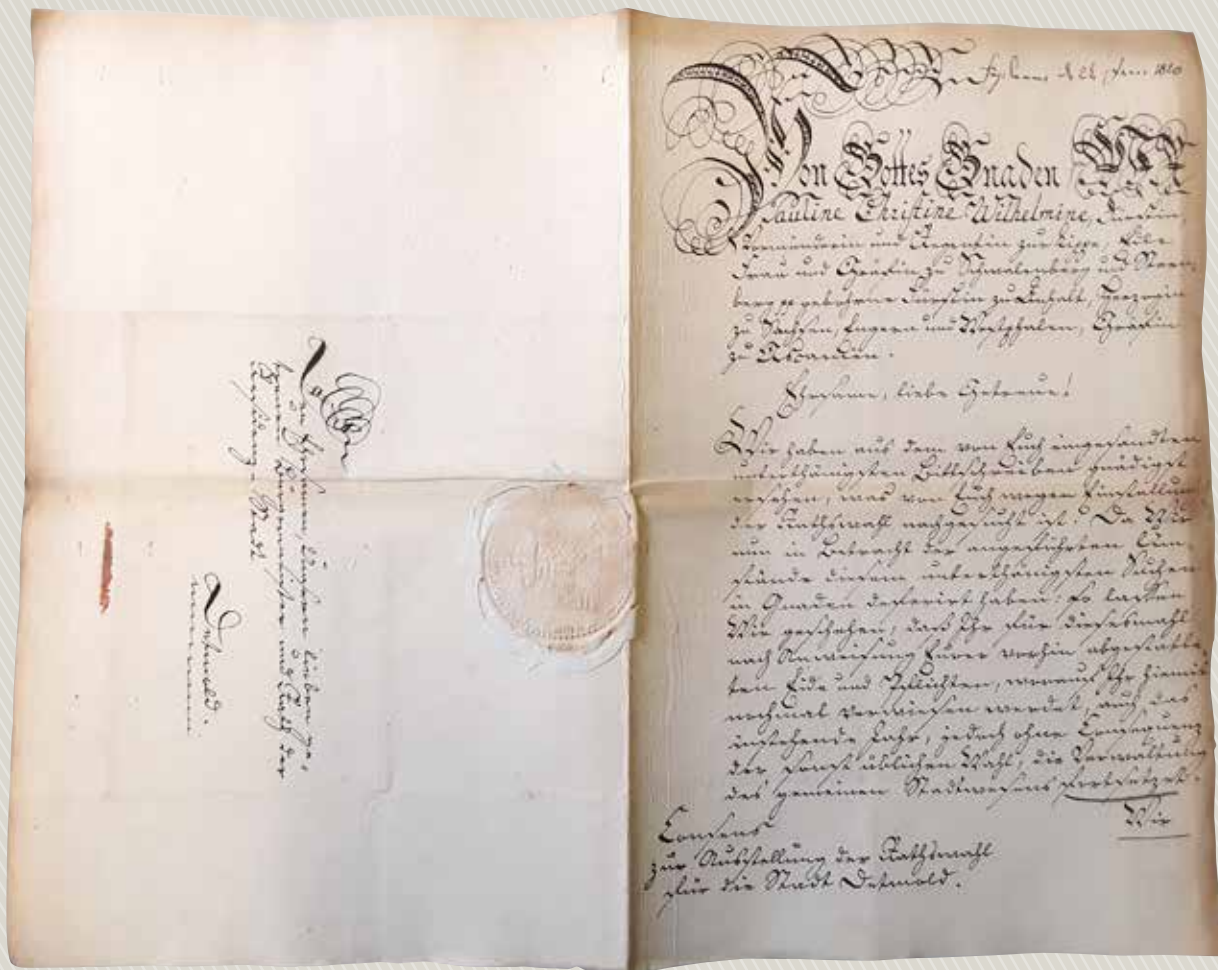 Den Ehrsamen, Unsern lieben ge-
treuen Bürgermeister und Rath der
Residenz-Stadt
Detmold.
Von Gottes Gnaden Wir
Pauline Christine Wilhelmine, Fürstin,
Vormünderin und Regentin zur Lippe, Edle
Frau und Gräfin zu Schwalenberg und Stern-
berg pp gebohrne Fürstin zu Anhalt, Herzogin
zu Sachsen, Engern und Westphalen, Gräfin
zu Ascanien.
Ehrsame, liebe Getreue!
Wir haben aus dem von Euch eingesandten
unterthänigsten Bittschreiben gnädigst
ersehen, was von Euch wegen Einstellung
der Rathswahl nachgesucht ist. Da Wir
nun in Betracht der angeführten Um-
stände diesem unterthänigsten Suchen
in Gnaden deferirt haben: So lassen
Wir geschehen, daß Ihr für diesesmahl
nach Anweisung Eurer vorhin abgestatte-
ten Eide und Pflichten, worauf Ihr hiemit
nochmal verwiesen werdet, auch das
instehende Jahr, jedoch ohne Consequenz
der sonst üblichen Wahl, die Verwaltung
des gemeinen Stadtwesens fortsetzet.
Wir
Consens
zur Ausstellung der Rathswahl
für die Stadt Detmold.